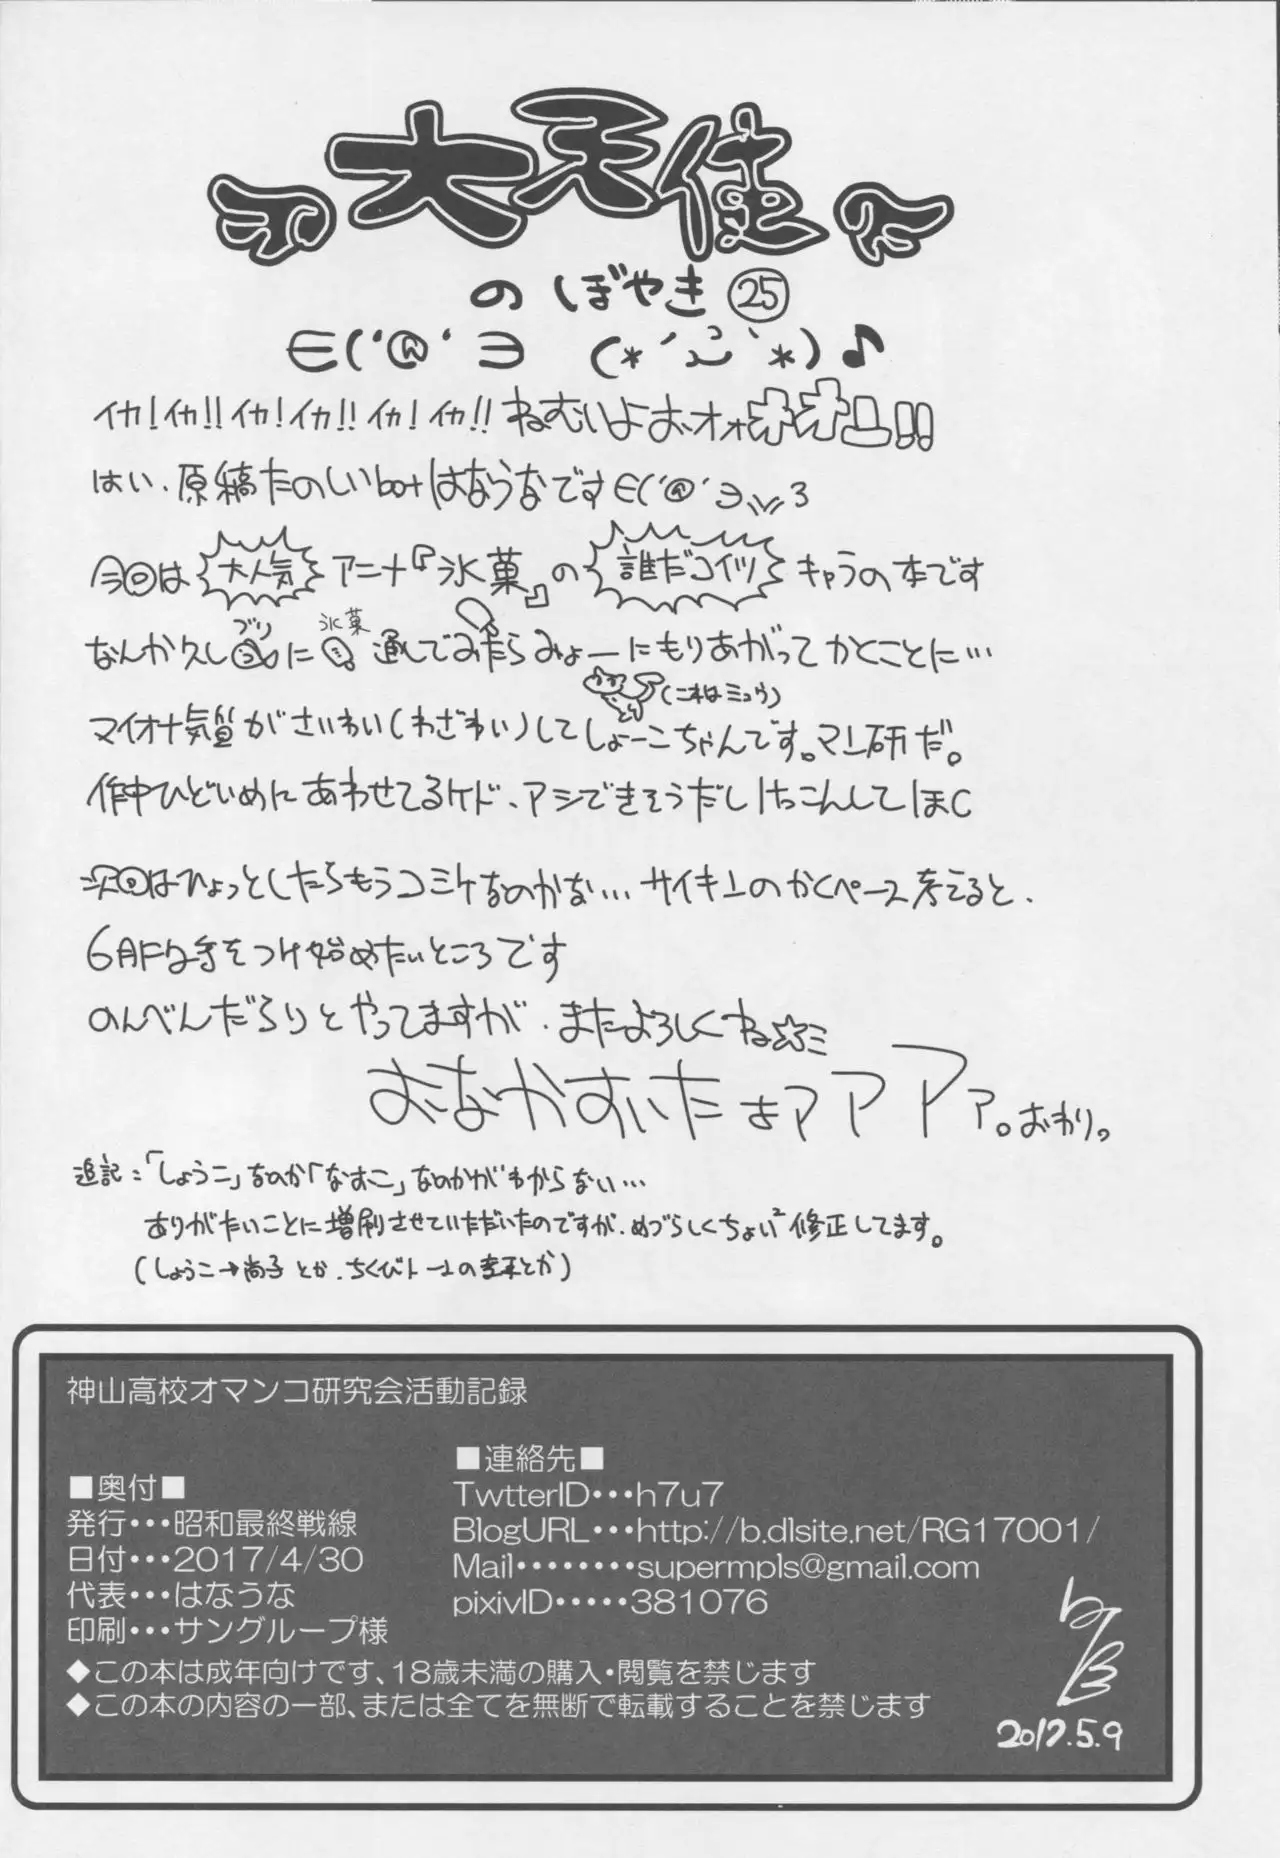 大天使
のぼやき㉕
∈('@'∋ (*´ `*)♪
イカ!イカ!!イカ!イカ!!イカ!イカ!!ねむいよおーオォオオー!!
はい、原稿たのしいbotはなうなです∈('@'∋ 3
今回は大人気アニナ『氷菓』の誰だコイツキャラの本です
なんか久しブリに氷菓通してみたらみょーにもりあがってかくことに…
(これはミュウ)
マイオナ気質がさいわい(わざわい)してしょーこちゃんです。マン研だ。
作中ひどいめにあわせてるケド、アシできそうだしけっこんしてほC
次回はひょっとしたらもうコミケなのかな… サイキンのかくペース考えると、
6月に手をつけ始めたいところです
のんべんだらりとやってますが、またよろしくね☆ミ
おなかすいたよアアアァ。おわり。
追記:「しょうこ」なのか「なおこ」なのかがわからない…
ありがたいことに増刷させていただいたのですが、めづらしくちょい²修正してます。
(しょうこ→尚子とか、ちくびトーンの とか)
神山高校オマンコ研究会活動記録
■奥付■
発行・・・昭和最終戦線
日付・・・2017/4/30
代表・・・はなうな
印刷・・・サングループ様
■連絡先■
TwtterID・・・h7u7
BlogURL・・・http://b.dlsite.net/RG17001/
Mail・・・・・・・・supermpls@gmail.com
pixivID・・・・・381076
◆この本は成年向けです、18歳未満の購入・閲覧を禁じます
◆この本の内容の一部、または全てを無断で転載することを禁じます
2017.5.9